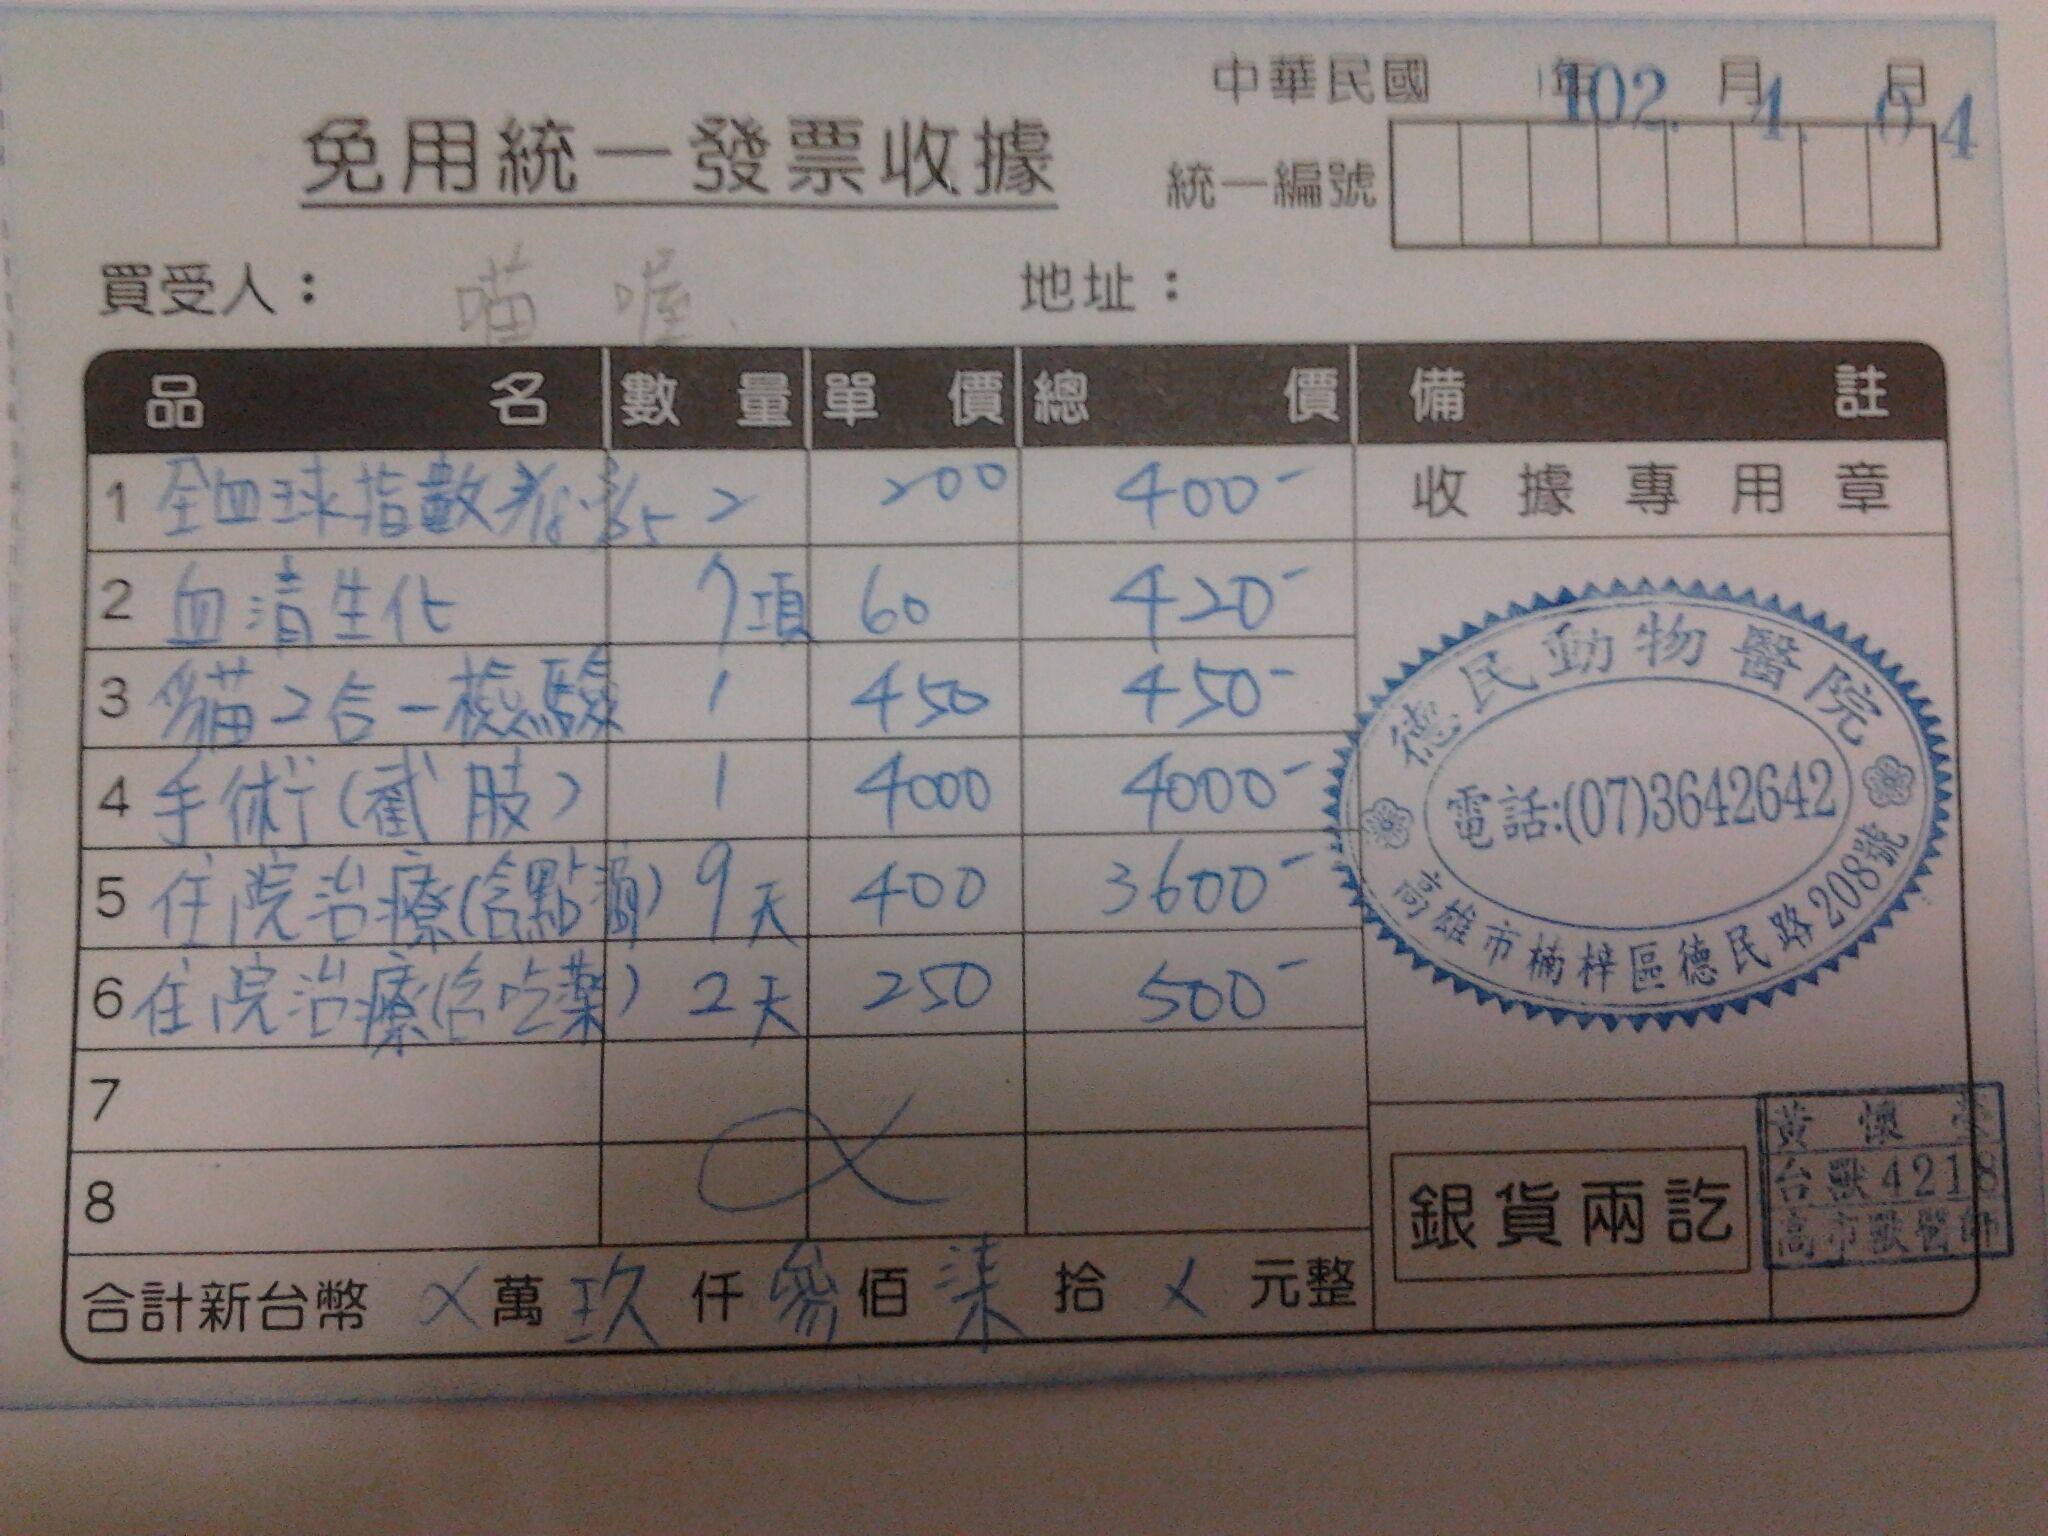 中華民國 年 月 日
102. 4. 04
免用統一發票收據
統一編號
買受人： 喵喔
地址：
品名 數量 單價 總價 備註
1 全血球指數 2 200 400-
收據專用章
2 血清生化 7項 60 420-
3 貓2合一檢驗 1 450 450-
4 手術(截肢) 1 4000 4000-
5 住院治療(含點滴) 9天 400 3600-
6 住院治療(含吃藥) 2天 250 500-
7
8
德民動物醫院
電話:(07)3642642
高雄市楠梓區德民路208號
銀貨兩訖
黃懷
台獸4218
高市獸醫師
合計新台幣 X萬玖仟參佰柒拾X元整